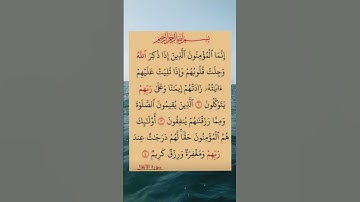 بسم الله الرحمن الرحيم
إِنَّمَا ٱلْمُؤْمِنُونَ ٱلَّذِينَ إِذَا ذُكِرَ ٱللَّهُ
وَجِلَتْ قُلُوبُهُمْ وَإِذَا تُلِيَتْ عَلَيْهِمْ
ءَايَٰتُهُۥ زَادَتْهُمْ إِيمَٰنًا وَعَلَىٰ رَبِّهِمْ
يَتَوَكَّلُونَ ٢ ٱلَّذِينَ يُقِيمُونَ ٱلصَّلَوٰةَ
وَمِمَّا رَزَقْنَٰهُمْ يُنفِقُونَ ٣ أُو۟لَٰٓئِكَ
هُمُ ٱلْمُؤْمِنُونَ حَقًّا لَّهُمْ دَرَجَٰتٌ عِندَ
رَبِّهِمْ وَمَغْفِرَةٌ وَرِزْقٌ كَرِيمٌ ٤
سورة الأنفال